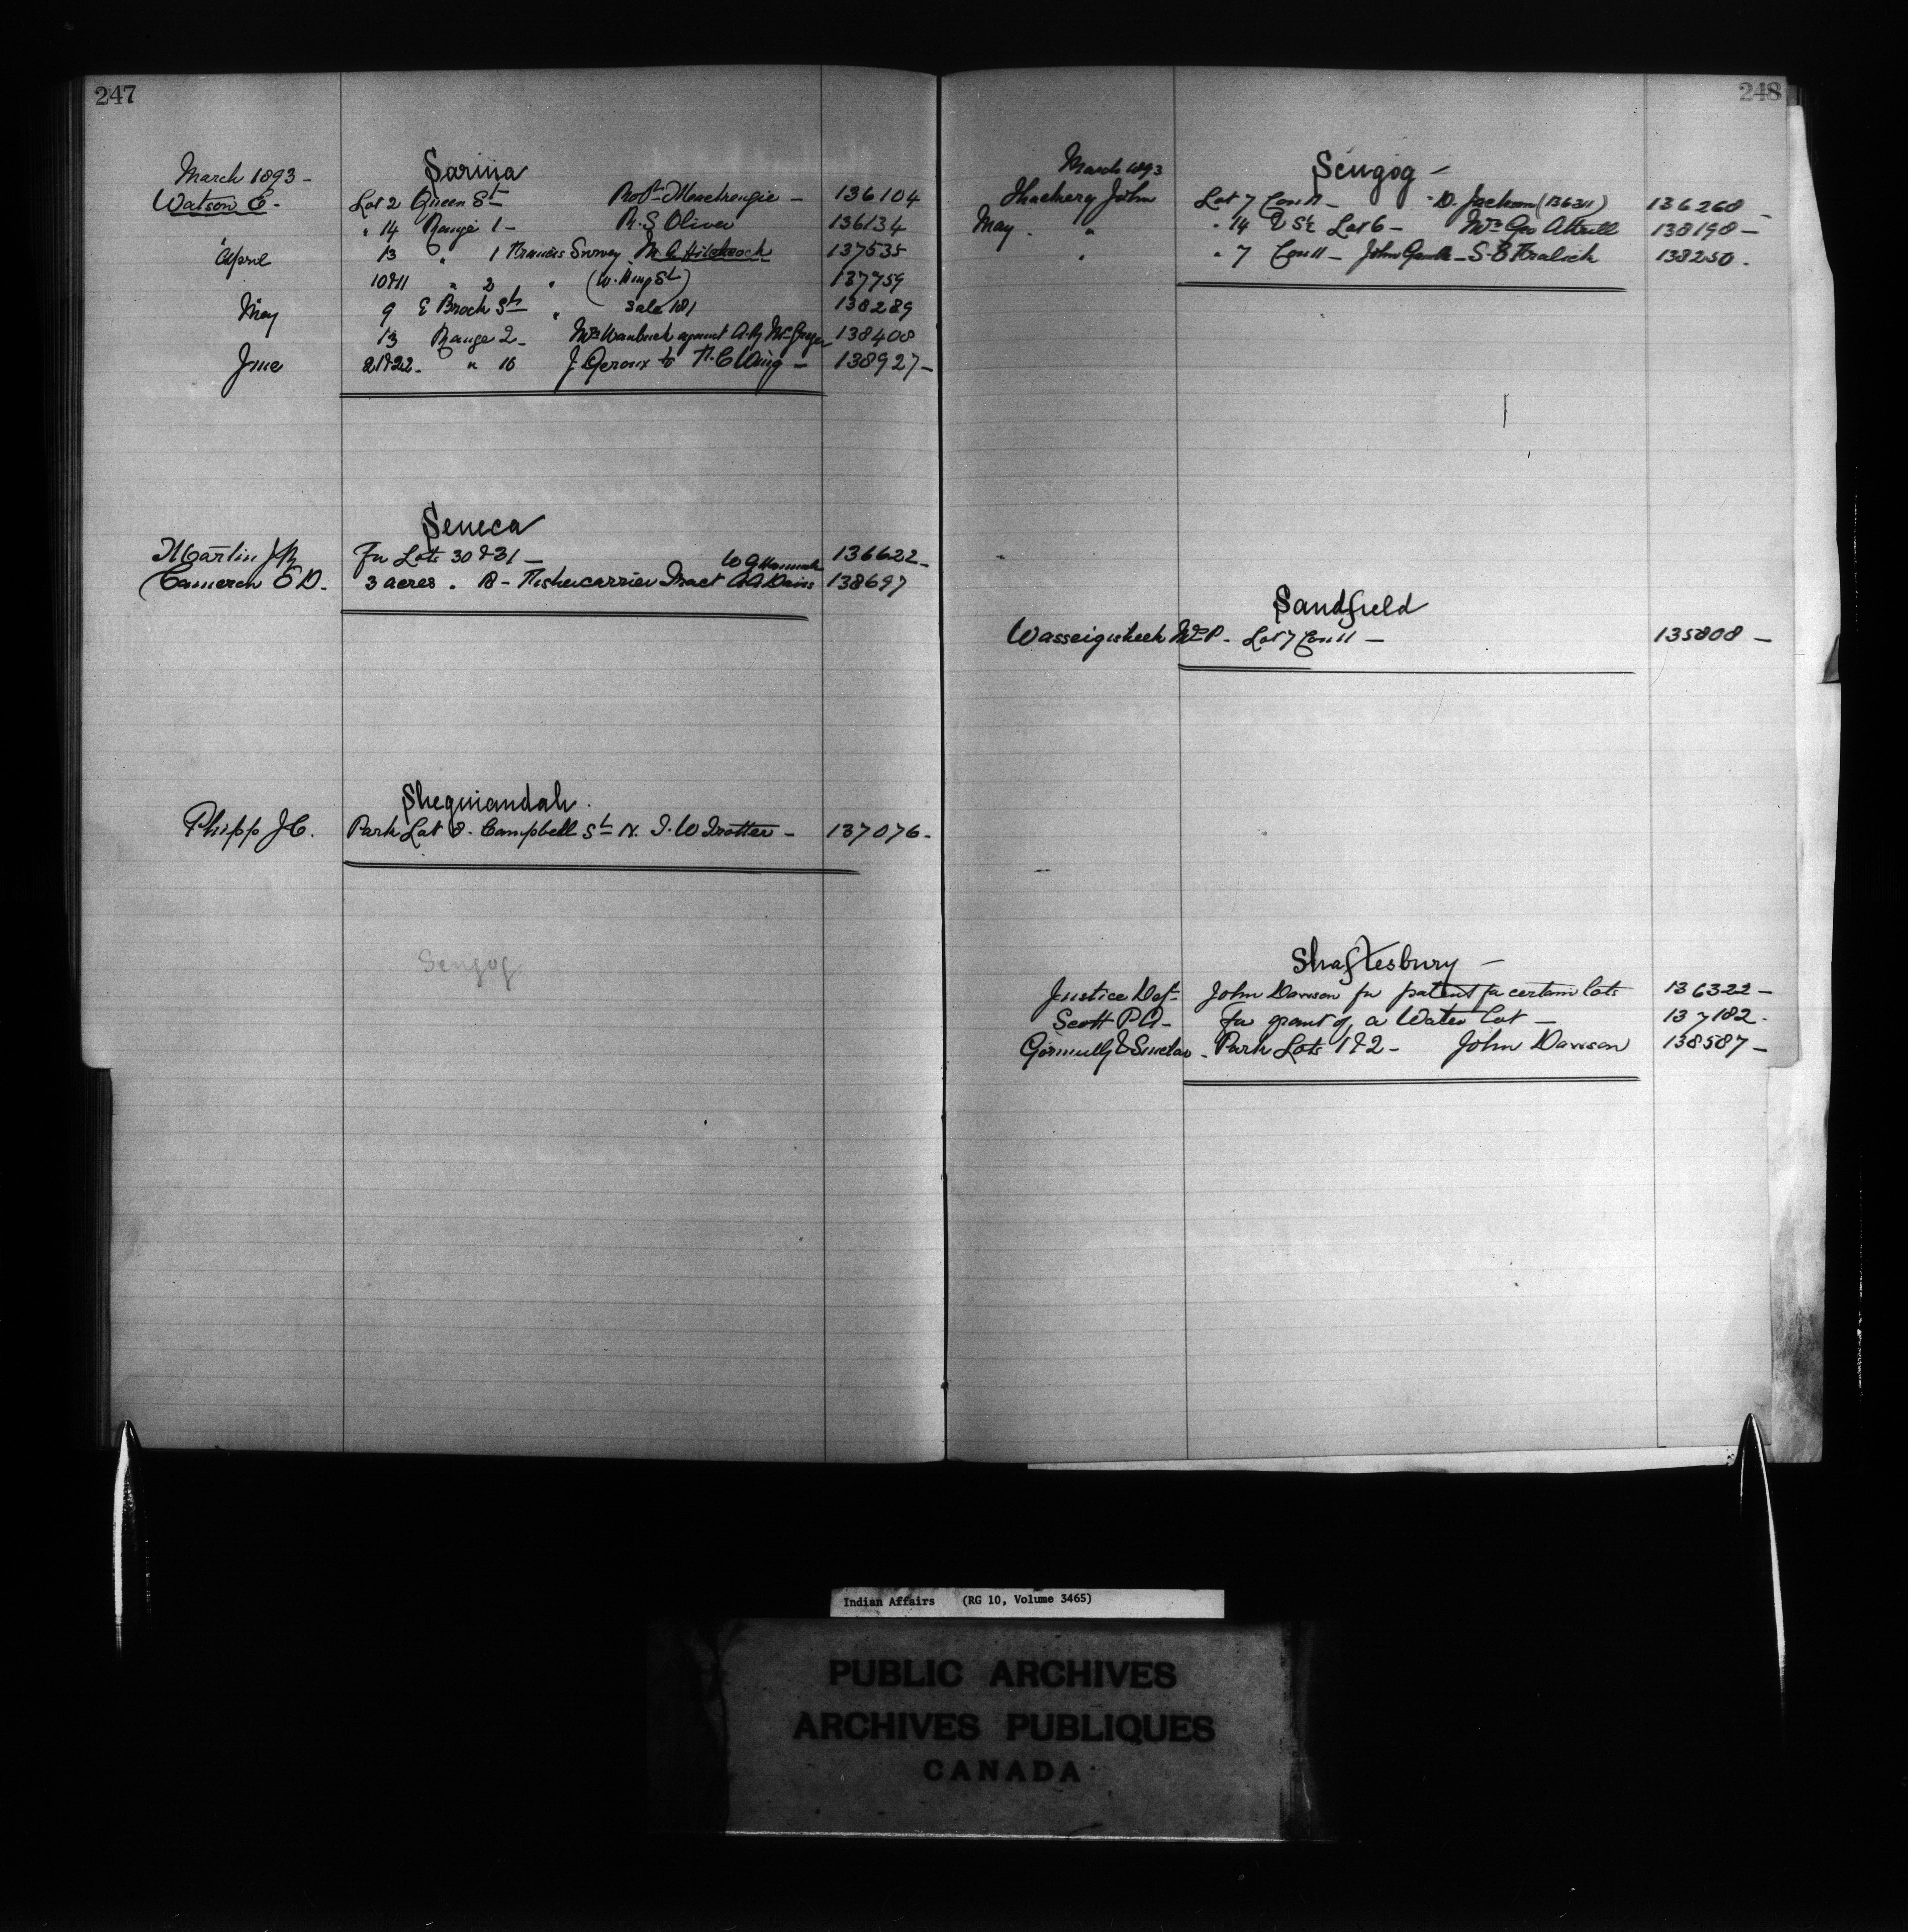 247
March 1893 -
Sarnia
Watson E. - Lot 2 Queen St Robt Mackenzie - 136104
" 14 Range 1 - R. S Oliver 136134
April 13 " 1 Francis Survey M. A. Hitchcock 137535
10 & 11 " 2 " (W. King St) 137759
May 9 E Brock St " Sale 181 138289
13 Range 2 - Mrs against A. R McGregor 138408
June 21 & 22 - " 10 J Geroux to T. C Wing - 138927 -
Seneca
Martin J R For Lots 30 & 31 - W G Hannah 136622 -
Cameron E D. 3 acres . B - Tract A A Davis 138697
Sheguiandah .
Phipp J C. Park Lot 8. Campbell St N. I. W Trotter - 137076 -
Scugog
248
March 1893
Scugog -
Thackery John Lot 7 Con 11 - D. Jackson (136311) 136268 -
May . " " 14 & S½ Lot 6 - Mrs Geo Attwell 138198 -
" " 7 Con 11 - John - S. B 138250 .
Sandfield
Wasseigisheek Wm P. - Lot 7 Con 11 - 135808 -
Shaftesbury -
Justice Dept John Dawson for patent for certain lots 136322 -
Scott P A - For grant of a Water Lot - 137182 .
Gormully & Sinclair - Park Lots 1 & 2 - John Dawson 138587 -
Indian Affairs (RG 10, Volume 3465)
PUBLIC ARCHIVES
ARCHIVES PUBLIQUES
CANADA